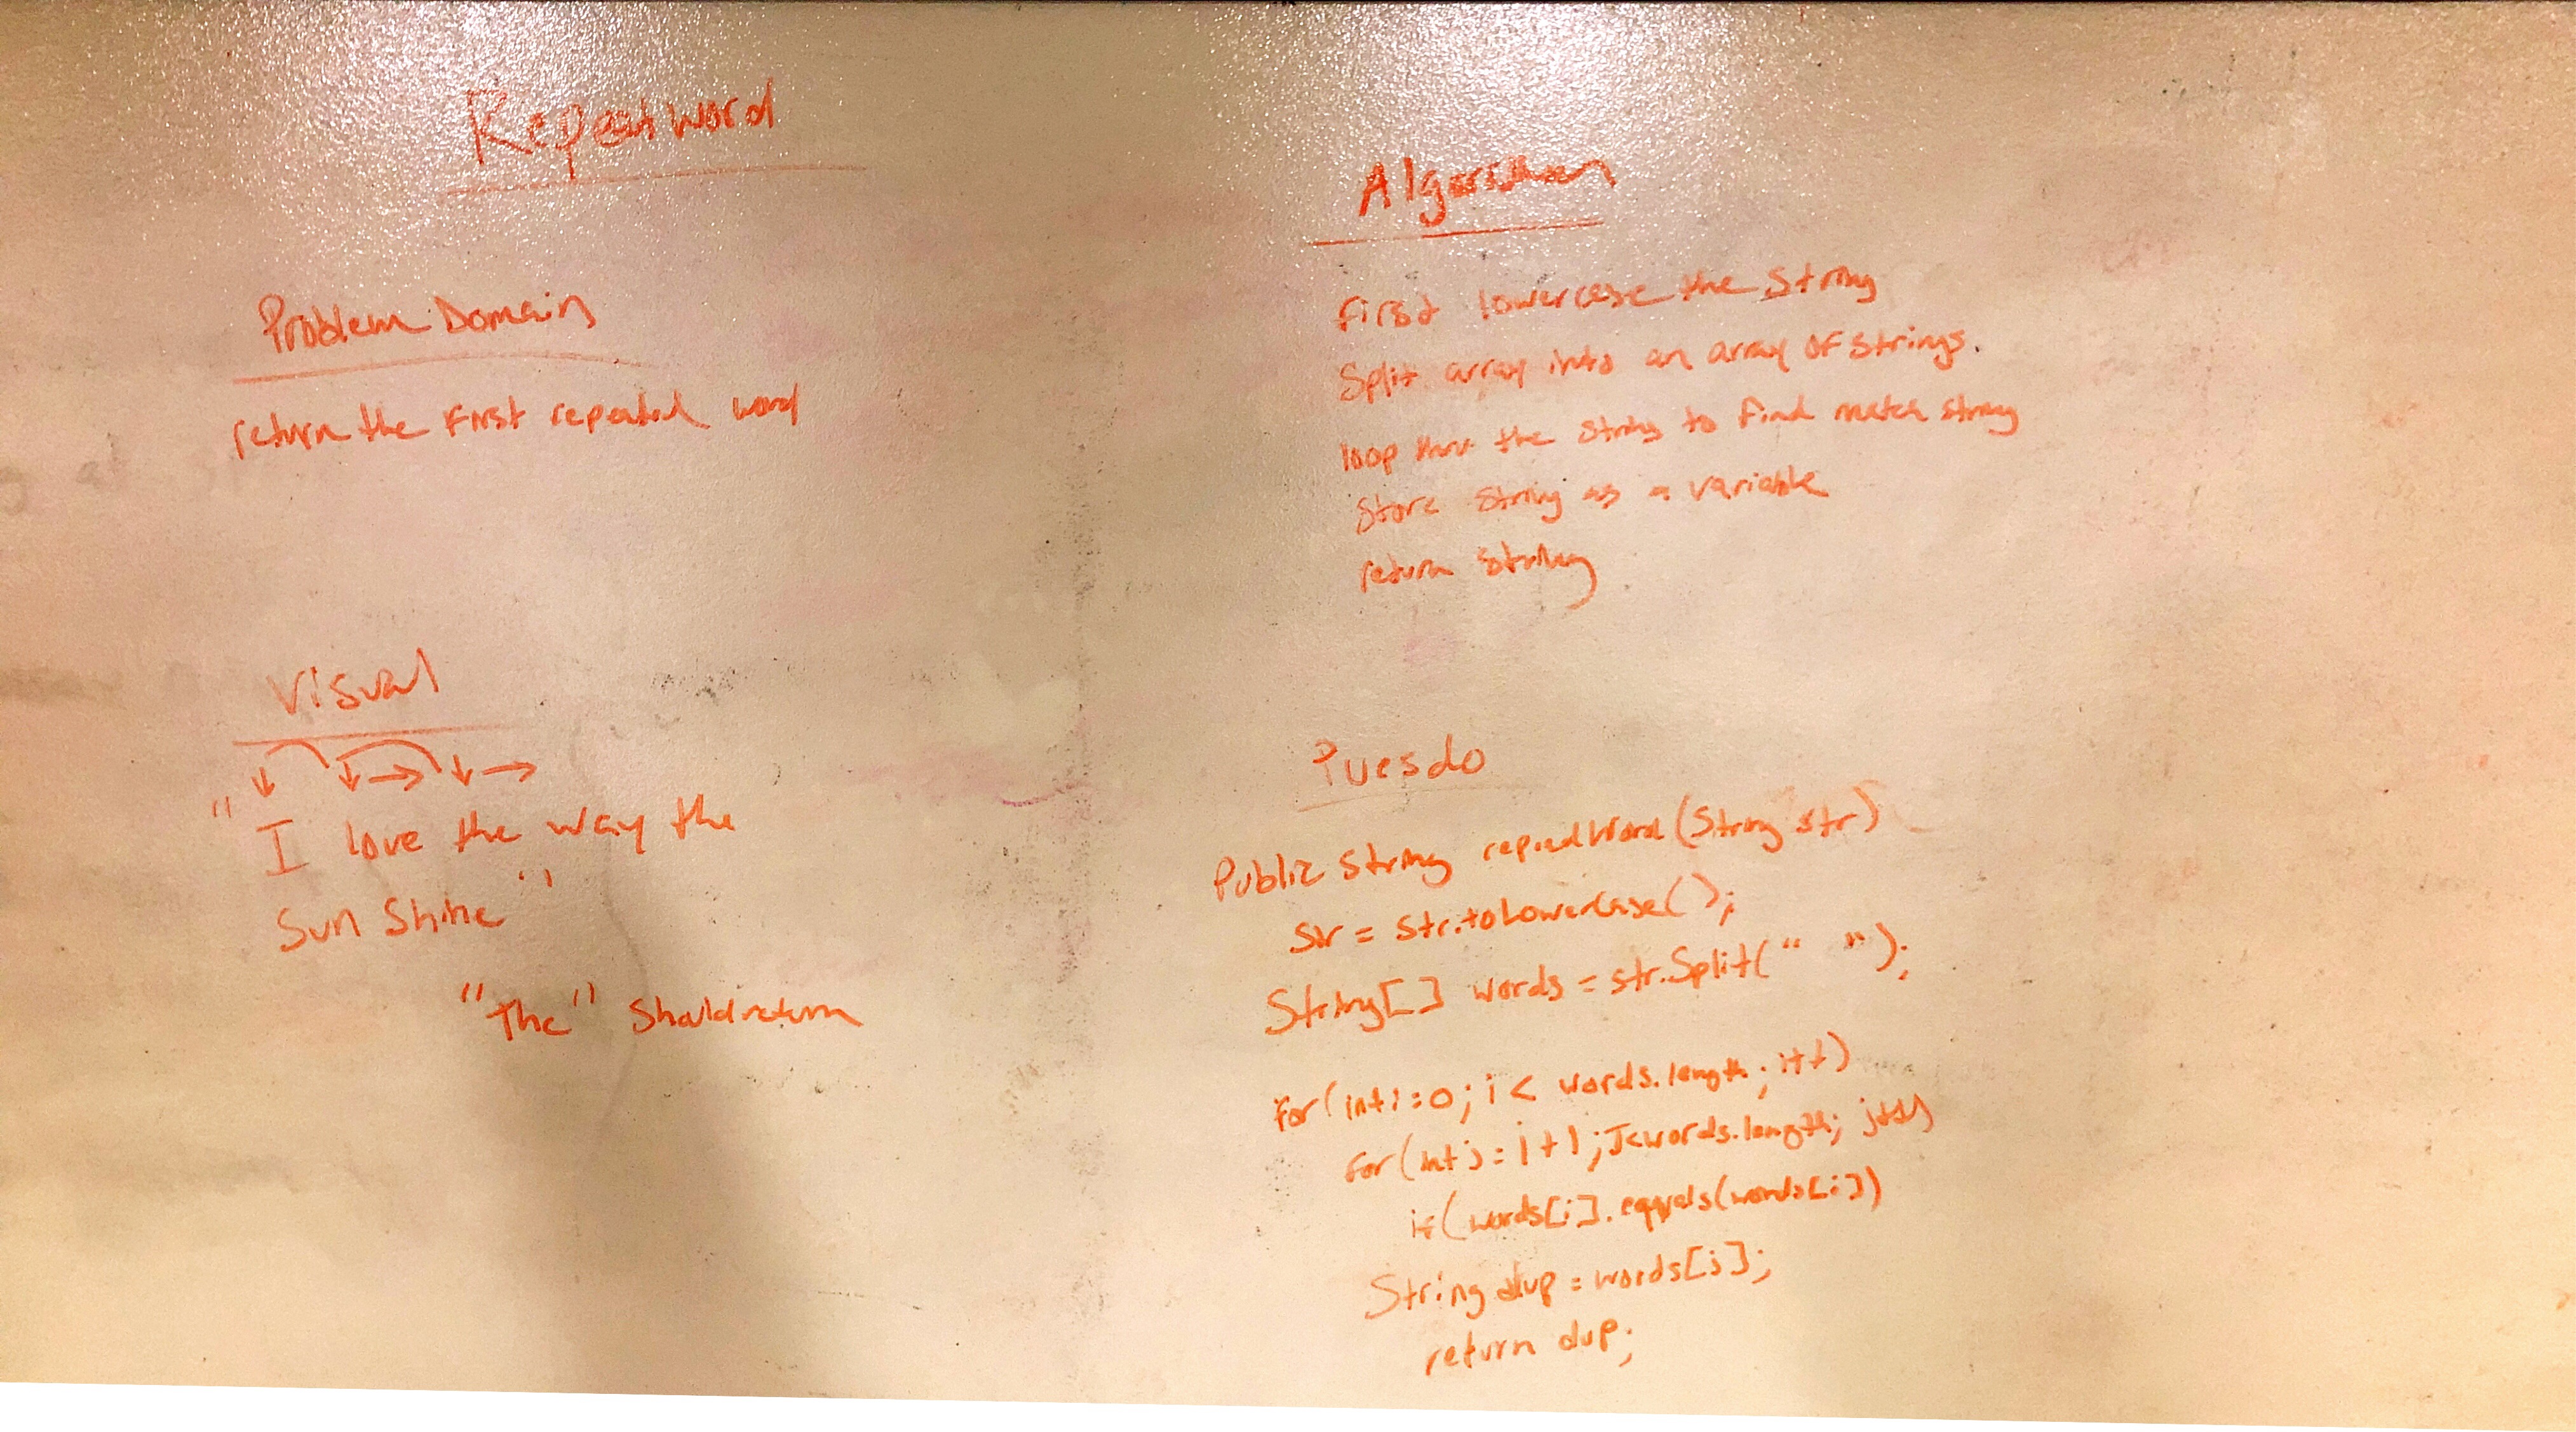 Repeat word
Problem Domain
return the first repeated word
Visual
" I love the way the
Sun Shine "
"The" Should return
Algorithm
First lowercase the String
Split array into an array of strings.
loop thru the string to find match string
Store string as a variable
return string
Puesdo
Public String (String str)
Str = Str.toLowerCase();
String[] words = str.Split(" ");
for(int i=0; i < words.length; i++)
for(int j = i+1; J<words.length; j++)
if(words[i].equals(words[i])
String dup = words[j];
return dup;